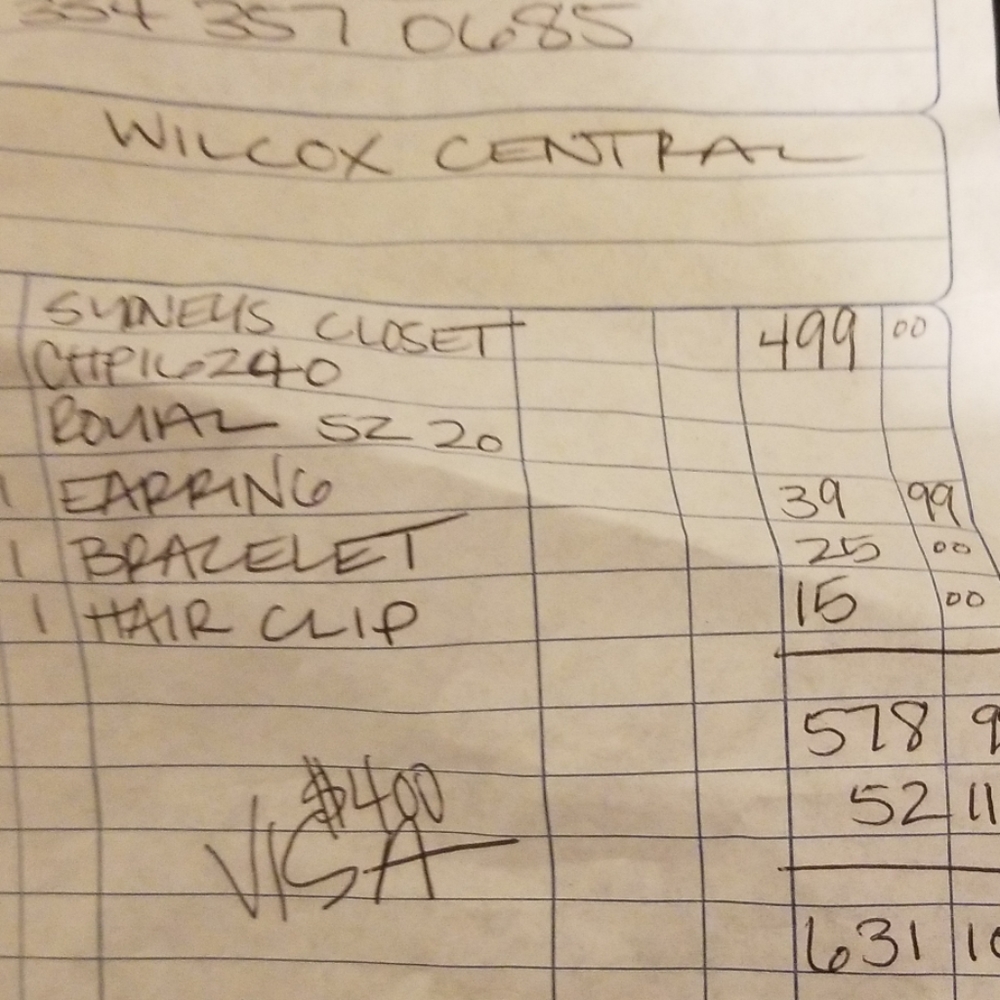 334 357 0685
WILCOX CENTRAL
SYDNEYS CLOSET 499 00
CHP16240
ROYAL SZ 20
1 EARRING 39 99
1 BRACELET 25 00
1 HAIR CLIP 15 00
578 9
$400 52 11
VISA
631 10